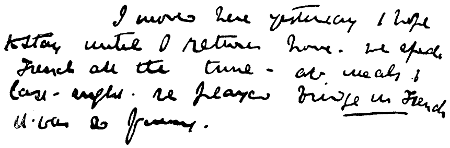 I moved here yesterday & hope
to stay until I return home. we speak
French all the time - at meals &
last-night. we played bridge in French
it was so funny.